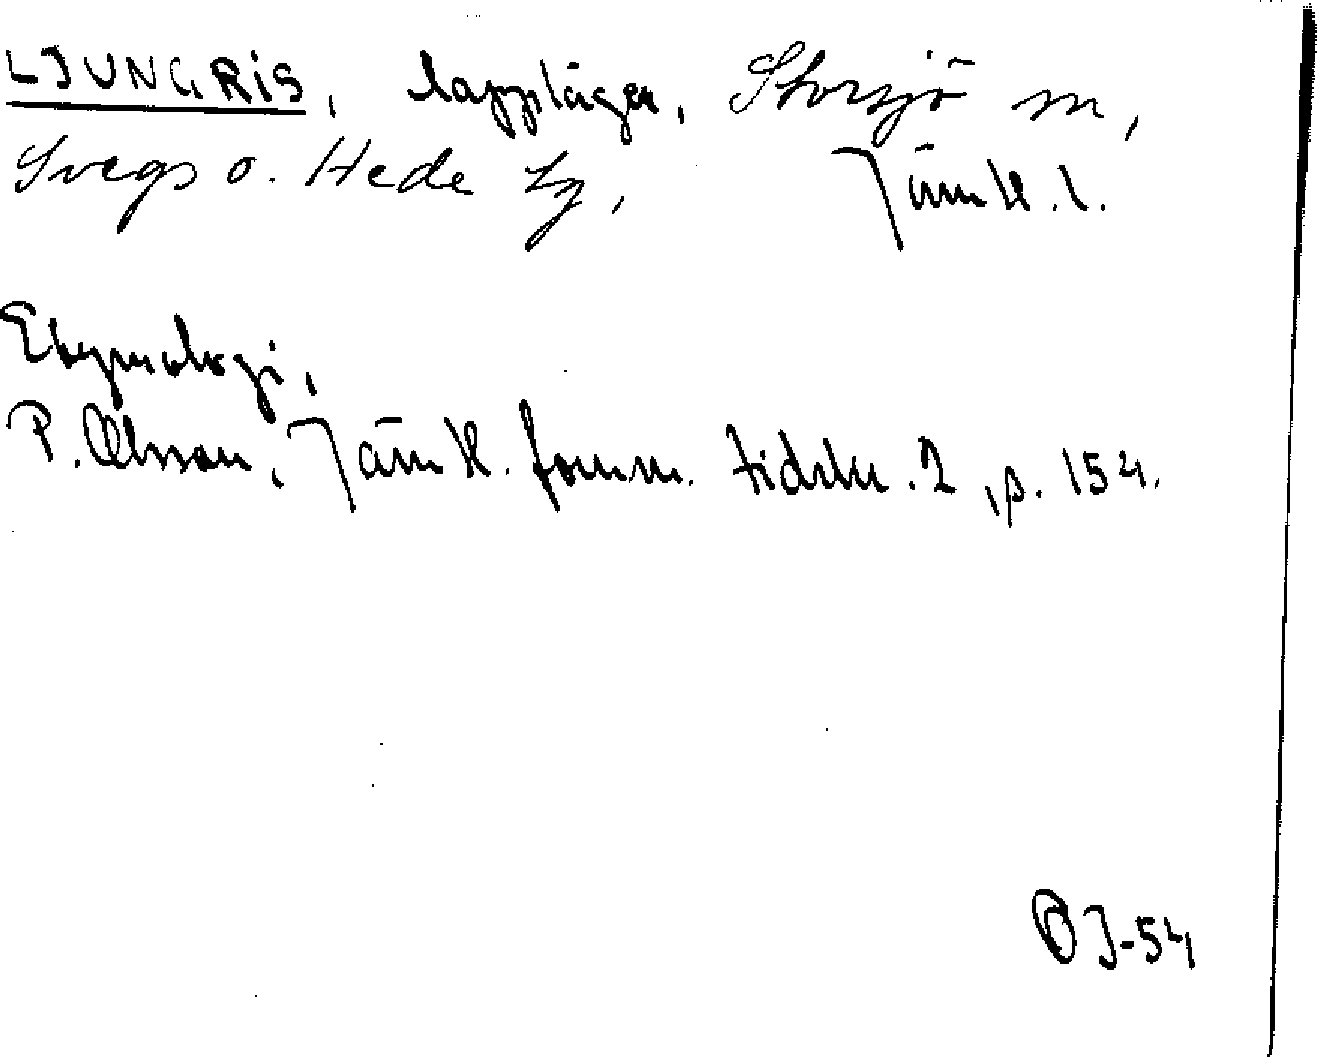 LJUNGRIS, lappläger, Storsjö sn,
Svegs o. Hede tg, Jämtl. l.
Etymologi,
P. Olsson, Jämtl. fornm. tidskr. 2, p. 154.
OJ-54